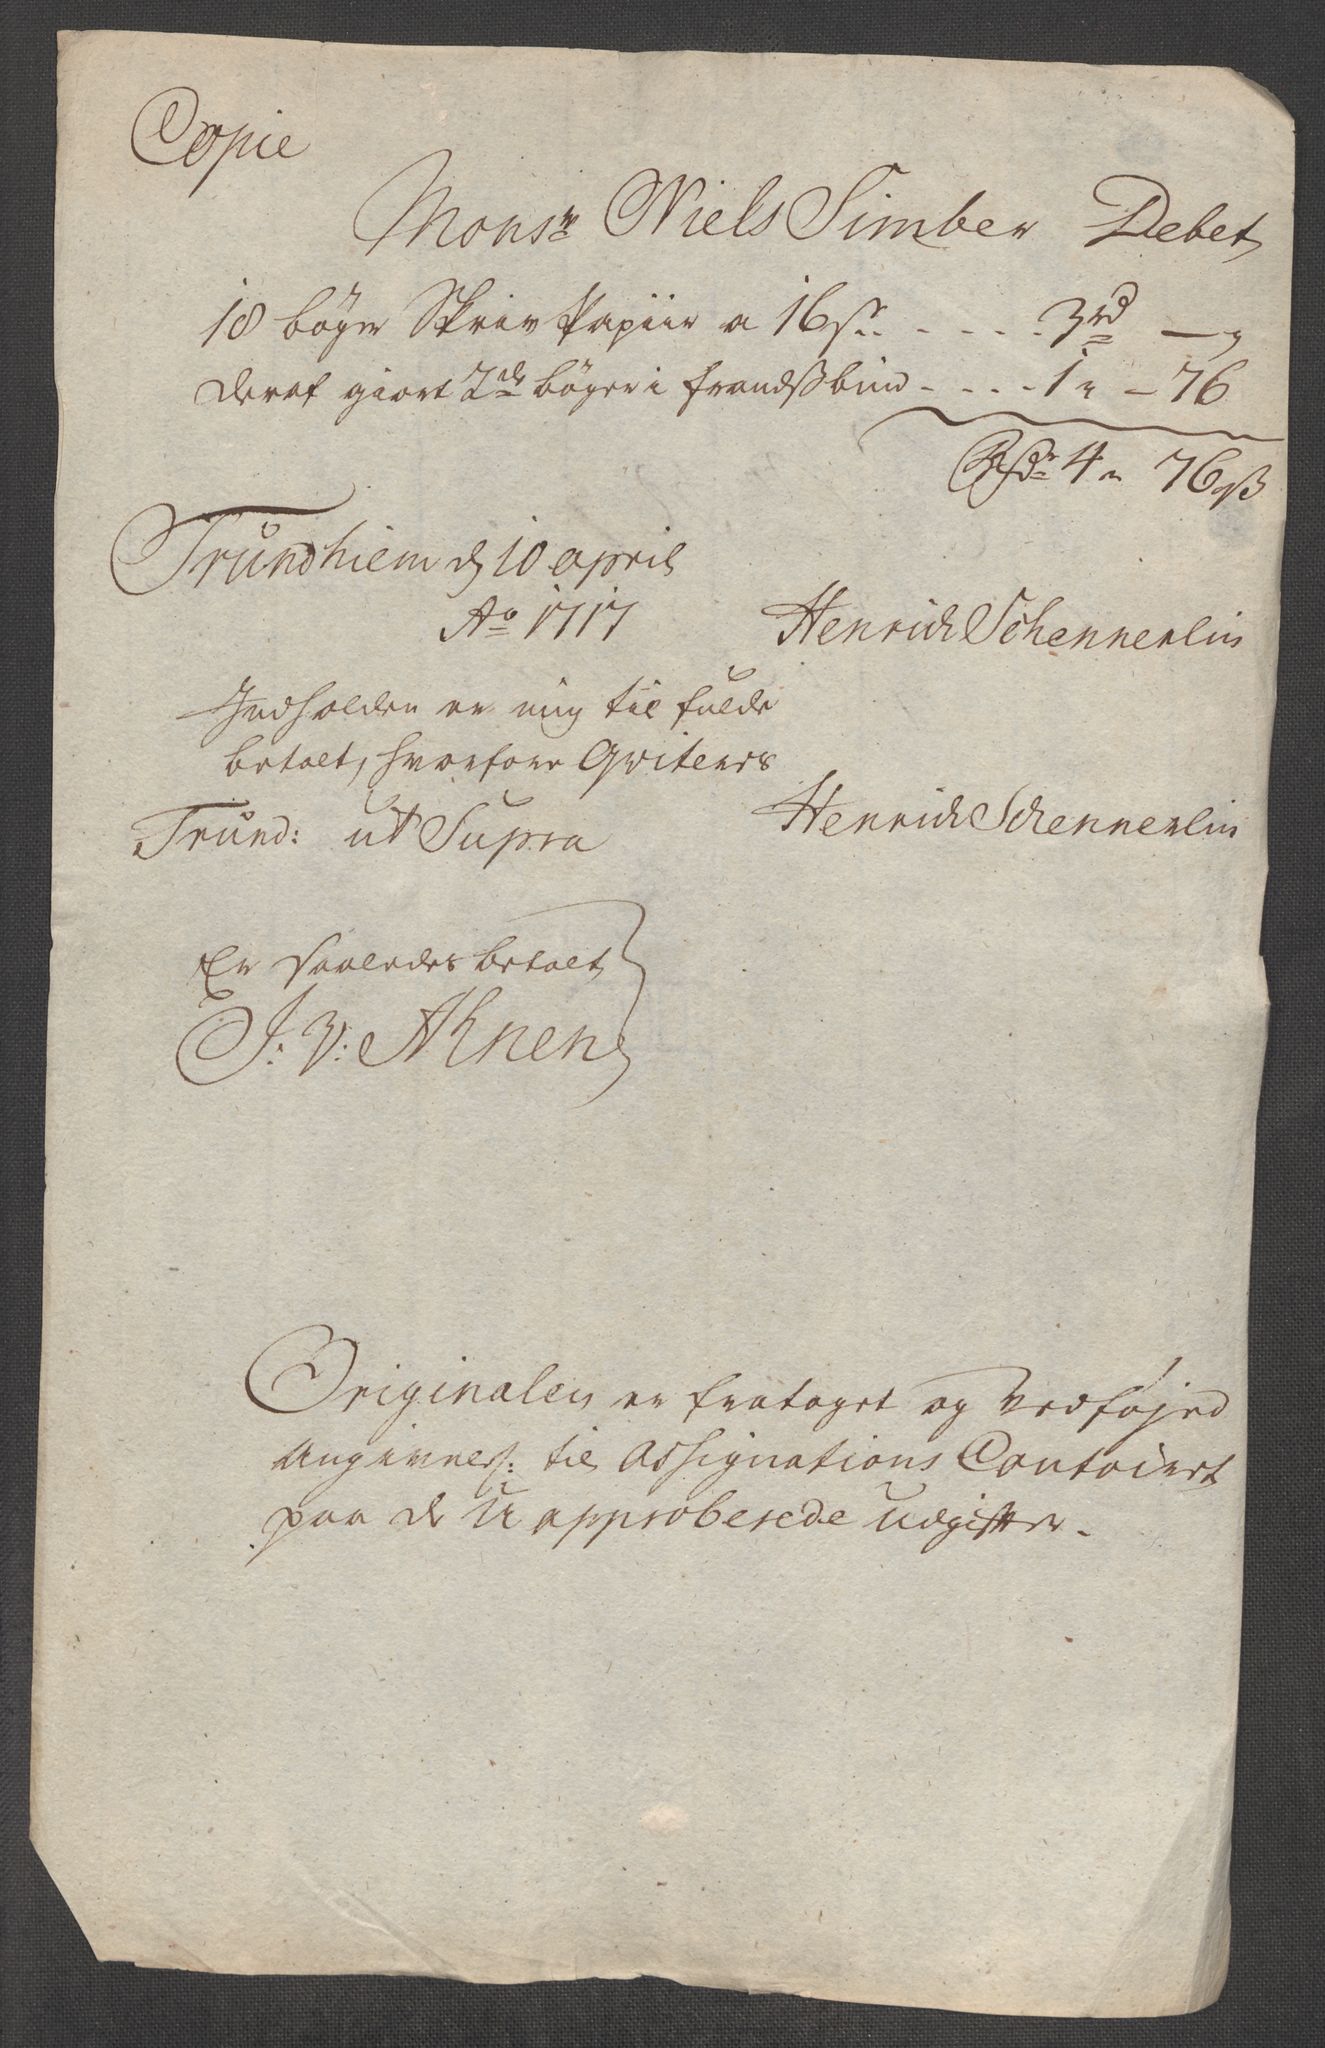 Copie
Monsr Niels Simber Debet
18 bøger Skriv Papiir a 16 s. . . . . 3 rd —
deraf giort 2de bøger i frandsbind - . . . 1 " — 76
Rdr 4 " 76 ß
Trundhiem d 10 april
Ao 1717
Henrich Schennerlin
Indholden er mig til fulde
betalt, hvorfore Qviteris
Trund: ut Supra
Henrich Schennerlin
Er saaledes betalt
J: V: Ahnen
Originalen er frataget og vedføjed
Angivels: til Assignations Contoiret
paa de U approberede udgifter.